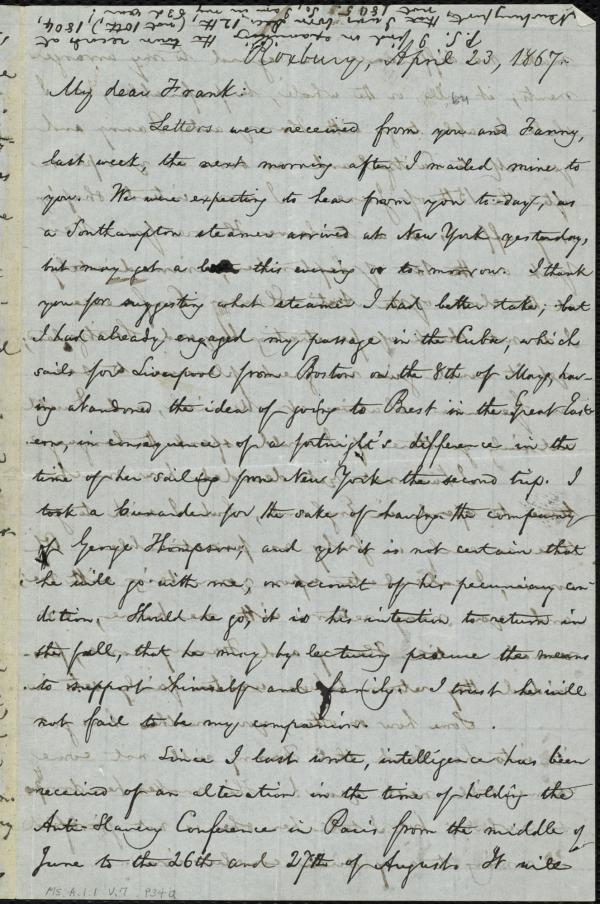 P.S. I find on examining the town records at
Newburyport, that I was born Dec. 12th, (not 10th,) 1804,
not 1805. So, I am in my 63d year!
Roxbury, April 23, 1867.
My dear Frank:
Letters were received from you and Fanny,
last week, the next morning after I mailed mine to
you. We were expecting to hear from you to-day, as
a Southampton steamer arrived at New York yesterday,
but may get a this evening or to-morrow. I thank
you for suggesting what steamer I had better take; but
I had already engaged my passage in the Cuba, which
sails for Liverpool from Boston on the 8th of May, hav-
ing abandoned the idea of going to Brest in the Great East-
ern, in consequence of a fortnight's difference in the
time of her sailing from New York the second trip. I
took a Cunarder for the sake of having the company
of George Thompson; and yet it is not certain that
he will go with me, on account of his pecuniary con-
dition. Should he go, it is his intention to return in
the fall, that he may by lecturing procure the means
to support himself and family. I trust he will
not fail to be my companion.
Since I last wrote, intelligence has been
received of an alteration in the time of holding the
Anti-Slavery Conference in Paris from the middle of
June to the 26th and 27th of August. It will
Ms. A.1.1 V.7 P34Q